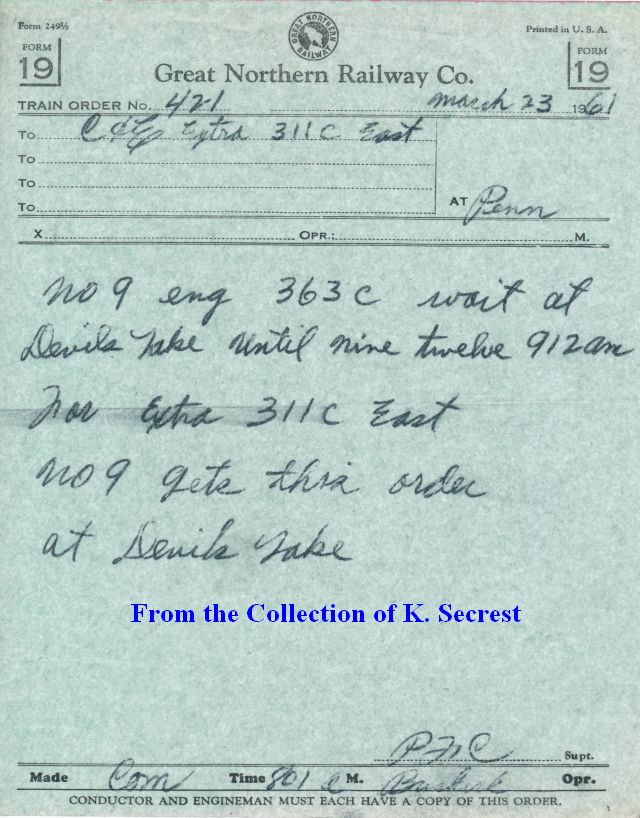 Form 249½
Printed in U. S. A.
GREAT NORTHERN RAILWAY
FORM 19
FORM 19
Great Northern Railway Co.
TRAIN ORDER No. 421 March 23 1961
To C & E Extra 311C East
To
To
To
AT Penn
X OPR.; M.
No 9 eng 363C wait at
Devils Lake until nine twelve 912am
For Extra 311C East
No 9 gets this order
at Devils Lake
From the Collection of K. Secrest
Supt.
Made Com Time 801 a M. Opr.
CONDUCTOR AND ENGINEMAN MUST EACH HAVE A COPY OF THIS ORDER.